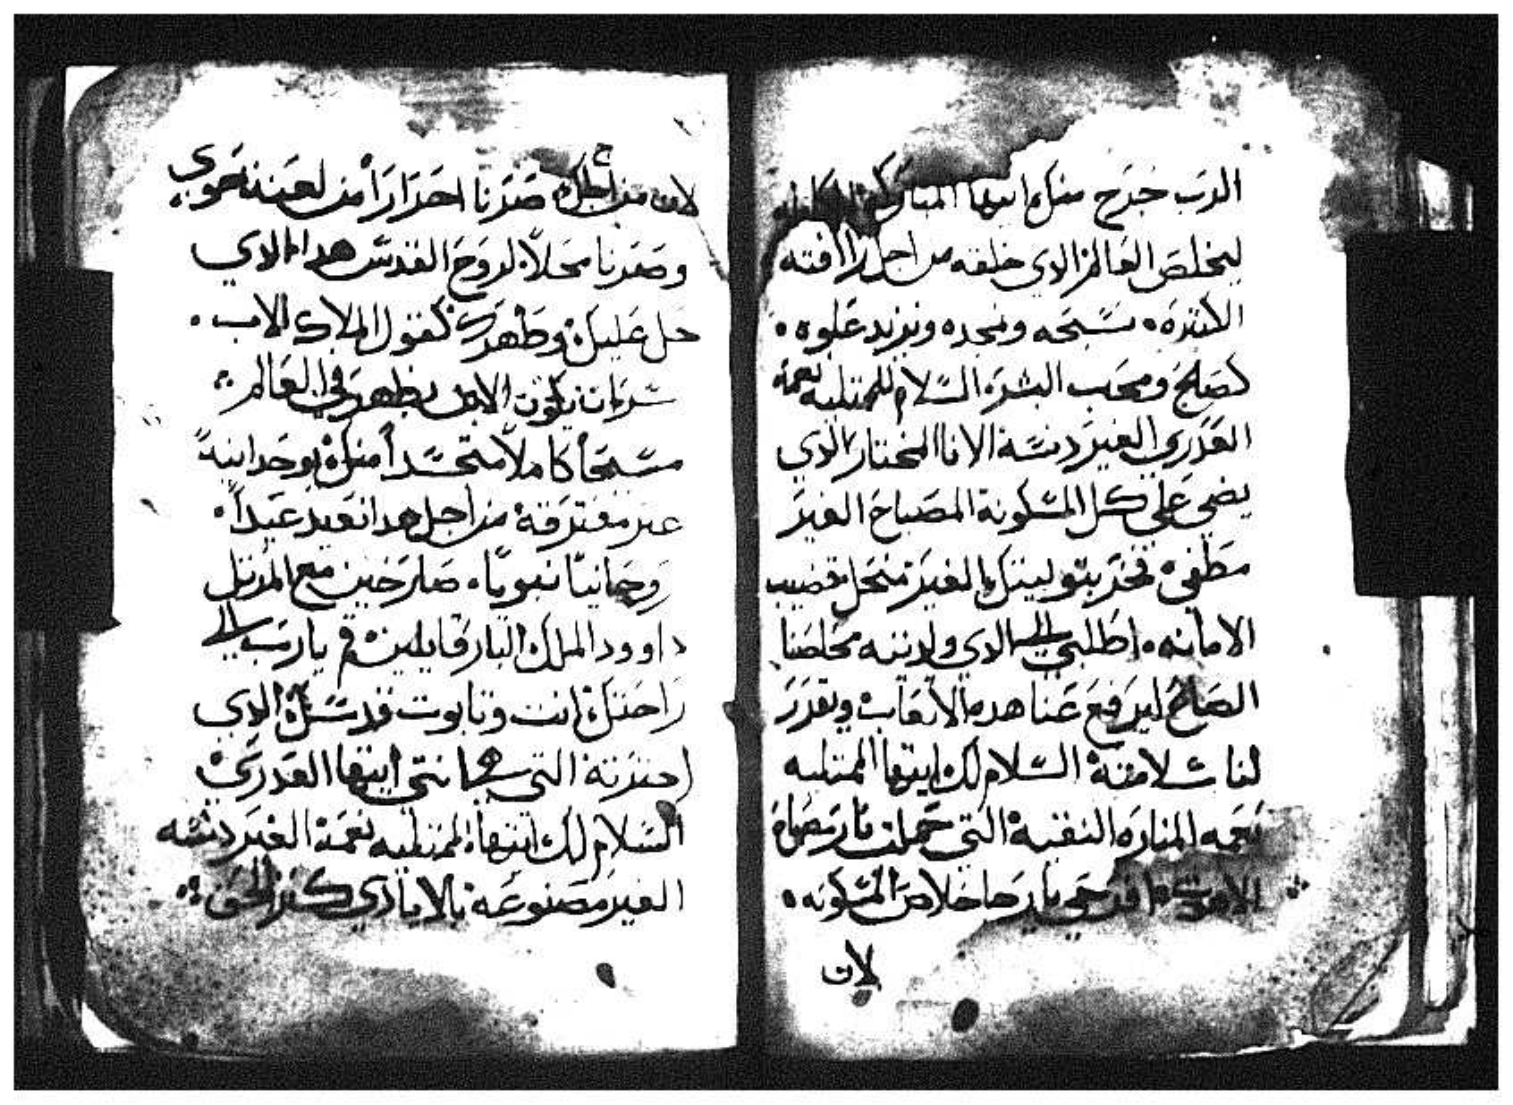 الرب خرج منك ايتها المباركة
ليخلص العالم الدي خلقه من اجل رافته
الكتيره نسبحه ونمجده ونزيد علوه
كصالح ومحب البشر السلام للممتليه نعمه
العدري الغير دنسة الانا المختار الدي
يضي علي كل المسكونة المصباح الغير
مطفي فخر بتوليتك الغير منحل قضيب
الامانه اطلبي الي الدي ولدتيه مخلصنا
الصالح ليرفع عنا هده الاتعاب ويقرر
لنا سلامتة السلام لك ايتها الممتليه
نعمه المناره النقية التي حملت
خلاص المسكونه
لان
لان من اجلك صرنا احرارا من لعنة حوي
وصرنا محلا لروح القدس هدا الدي
حل عليك وطهرك كقول الملاك
يكون الابن يظهر في العالم
مسيحا كاملا متجسدا منك بوحدانية
غير مفترقة من اجل هدا نعيد عيدا
روحانيا نبويا صارخين مع المرتل
داوود الملك البار قايلين قم يارب الي
راحتك انت وتابوت قدسك الدي
اخترته التي هي انتي ايتها العدري
السلام لك ايتها الممتليه نعمة الغير دنسه
الغير مصنوعه بالايادي كنز الحق